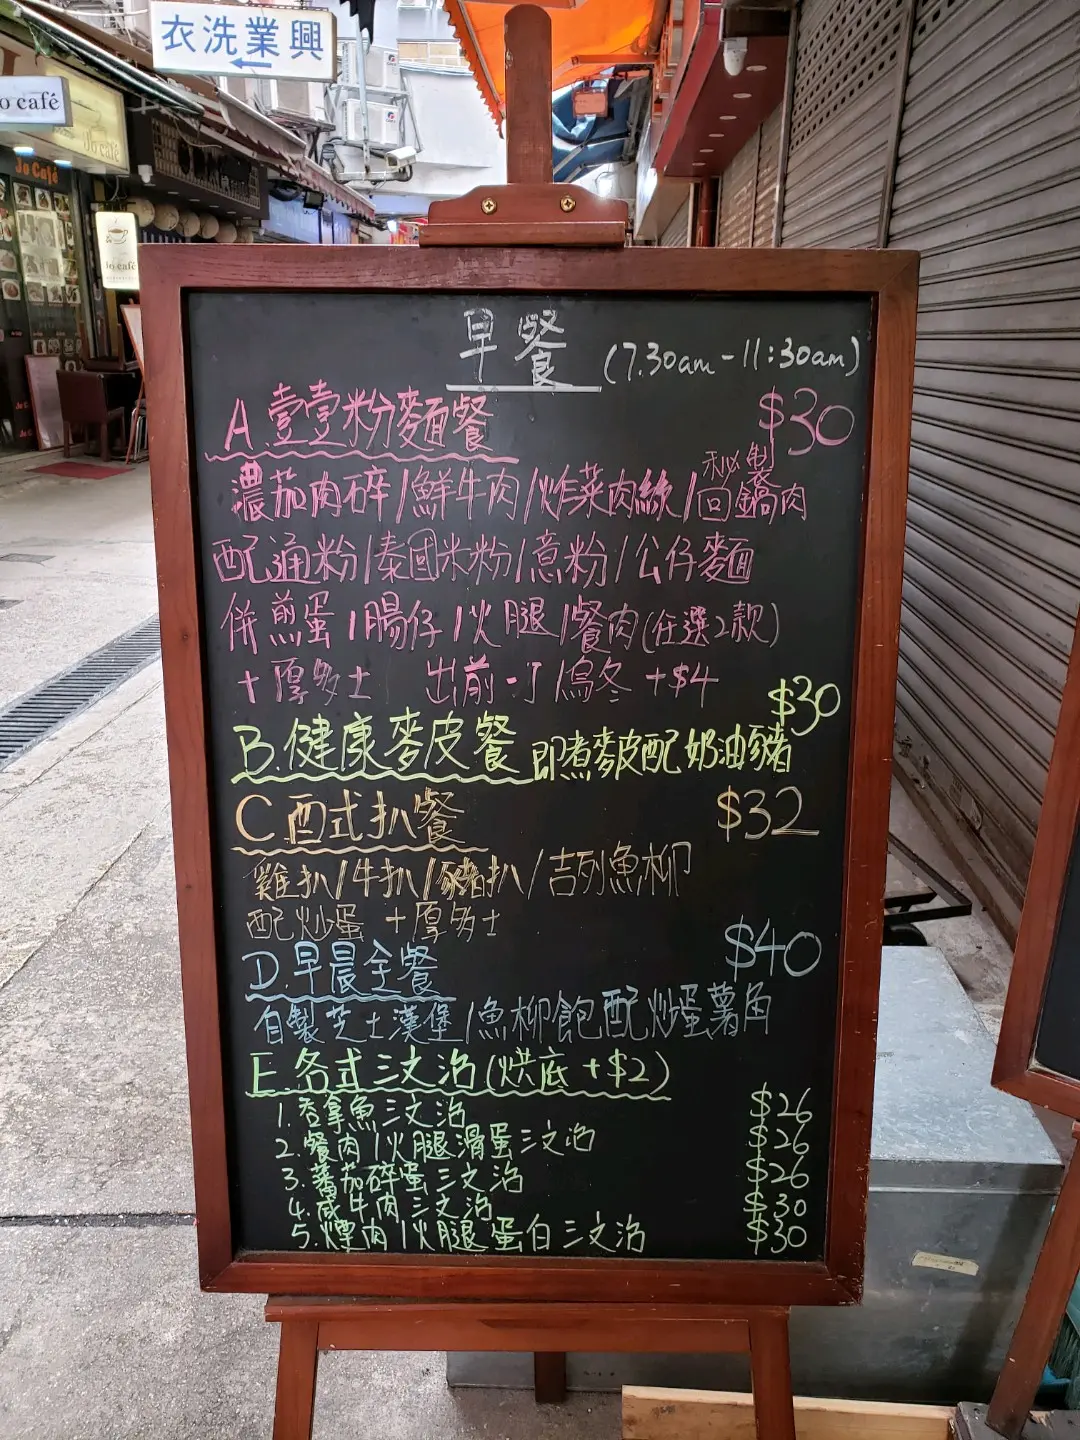 衣洗業興
o café
Jo café
Jo Café
Jo café
早餐 (7.30am-11:30am)
A.壹壹粉麵餐 $30
濃茄肉碎/鮮牛肉/炸菜肉絲/秘製回鍋肉
配通粉/泰國米粉/意粉/公仔麵
併煎蛋/腸仔/火腿/餐肉(任選2款)
+厚多士 出前一丁/烏冬 +$4
B.健康麥皮餐 即煮麥皮配奶油豬 $30
C 西式扒餐 $32
雞扒/牛扒/豬扒/吉列魚柳
配炒蛋 +厚多士
D.早晨全餐 $40
自製芝士漢堡/魚柳飽配炒蛋薯角
E.各式三文治(烘底 +$2)
1.吞拿魚三文治 $26
2.餐肉/火腿滑蛋三文治 $26
3.蕃茄碎蛋三文治 $26
4.咸牛肉三文治 $30
5.煙肉/火腿蛋白三文治 $30